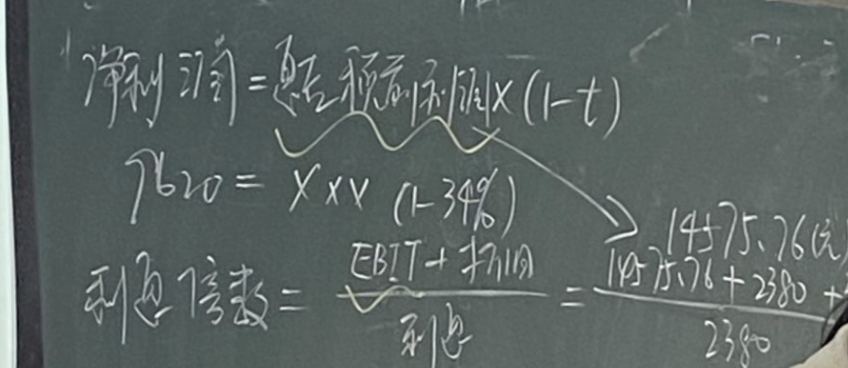 净利润=息后税前利润×(1-t)
9620= ××× (1-34%)
14575.76(元)
利息倍数= EBIT+折旧 = 14575.76+2380+
利息 2380